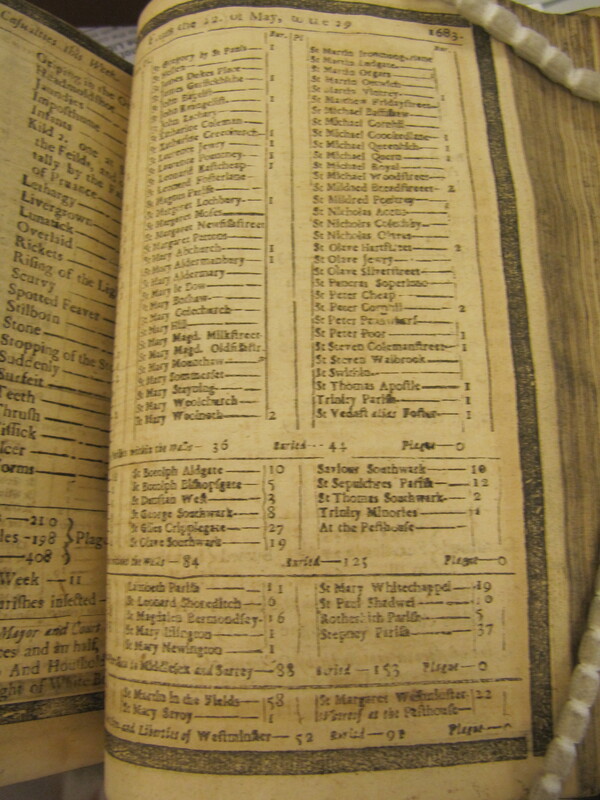 Casualties this Week.
Griping in the
Headmouldshot
Jaundies
Imposthume
Infants
Kild 2, one at
the Feilds, and
tally by the
of Purance
Lethargy
Livergrown
Lunatick
Overlaid
Rickets
Rising of the Lights
Scurvy
Spotted Feaver
Stilborn
Stone
Stopping of the
Suddenly
Surfeit
Teeth
Thrush
Tissick
Ulcer
Worms
210
198 Plag
408
Week — 11
arishes infected
Mayor and Court
And Houshold
From the 22. of May, to the 29 1683.
Bur. Pl Bur.
St Gregory by St Pauls 1
St James Dukes Place
St James Garlickhithe 1
St John Baptist
St John Evangelist 1
St John Zachary
St Katharine Coleman
St Katharine Creechurch 1
St Laurence Jewry 1
St Laurence Pountney 1
St Leonard Eastcheap 1
St Leonard Fosterlane
St Magnus Parish
St Margaret Lothbury 1
St Margaret Moses
St Margaret Newfishstreet
St Margaret Pattons
St Mary Abchurch 1
St Mary Aldermanbury 1
St Mary Aldermary
St Mary le Bow
St Mary Bothaw
St Mary Colechurch
St Mary Hill
St Mary Magd. Milkstreet
St Mary Magd. Oldfishstr.
St Mary Mounthaw
St Mary Sommerset
St Mary Stayning
St Mary Woolchurch
St Mary Woolnoth 2
St Martin Iremongerlane
St Martin Ludgate
St Martin Orgars
St Martin Outwich
St Martin Vintrey 1
St Matthew Fridaystreet
St Michael Bassishaw
St Michael Cornhil
St Michael Crookedlane 1
St Michael Queenhith 1
St Michael Quern 2
St Michael Royal
St Michael Woodstreet
St Mildred Breadstreet 2
St Mildred Poultrey
St Nicholas Acons
St Nicholas Coleabby
St Nicholas Olaves
St Olave Hartstreet 2
St Olave Jewry
St Olave Silverstreet
St Pancras Soperlane
St Peter Cheap
St Peter Cornhil 2
St Peter Paulswharf
St Peter Poor 1
St Steven Colemanstreet 1
St Steven Walbrook
St Swithin
St Thomas Apostle 1
Trinity Parish 1
St Vedast alias Foster 1
within the Walls — 36 Buried — 44 Plague — 0
St Botolph Aldgate 10
St Botolph Bishopsgate 5
St Dunstan West 3
St George Southwark 8
St Giles Cripplegate 27
St Olave Southwark 19
Saviour Southwark 10
St Sepulchres Parish 12
St Thomas Southwark 2
Trinity Minories 1
At the Pesthouse
without the Walls — 84 Buried — 125 Plague — 0
Lambeth Parish 11
St Leonard Shoreditch
St Magdalen Bermondsey 16
St Mary Islington 1
St Mary Newington 1
St Mary Whitechappel 19
St Paul Shadwel
Rotherhith Parish 5
Stepney Parish 37
in Middlesex and Surrey — 88 Buried — 153 Plague — 0
St Martin in the Fields 58
St Mary Savoy 1
St Margaret Westminster 22
Whereof at the Pesthouse
and Liberties of Westminster — 52 Buried — 98 Plague — 0